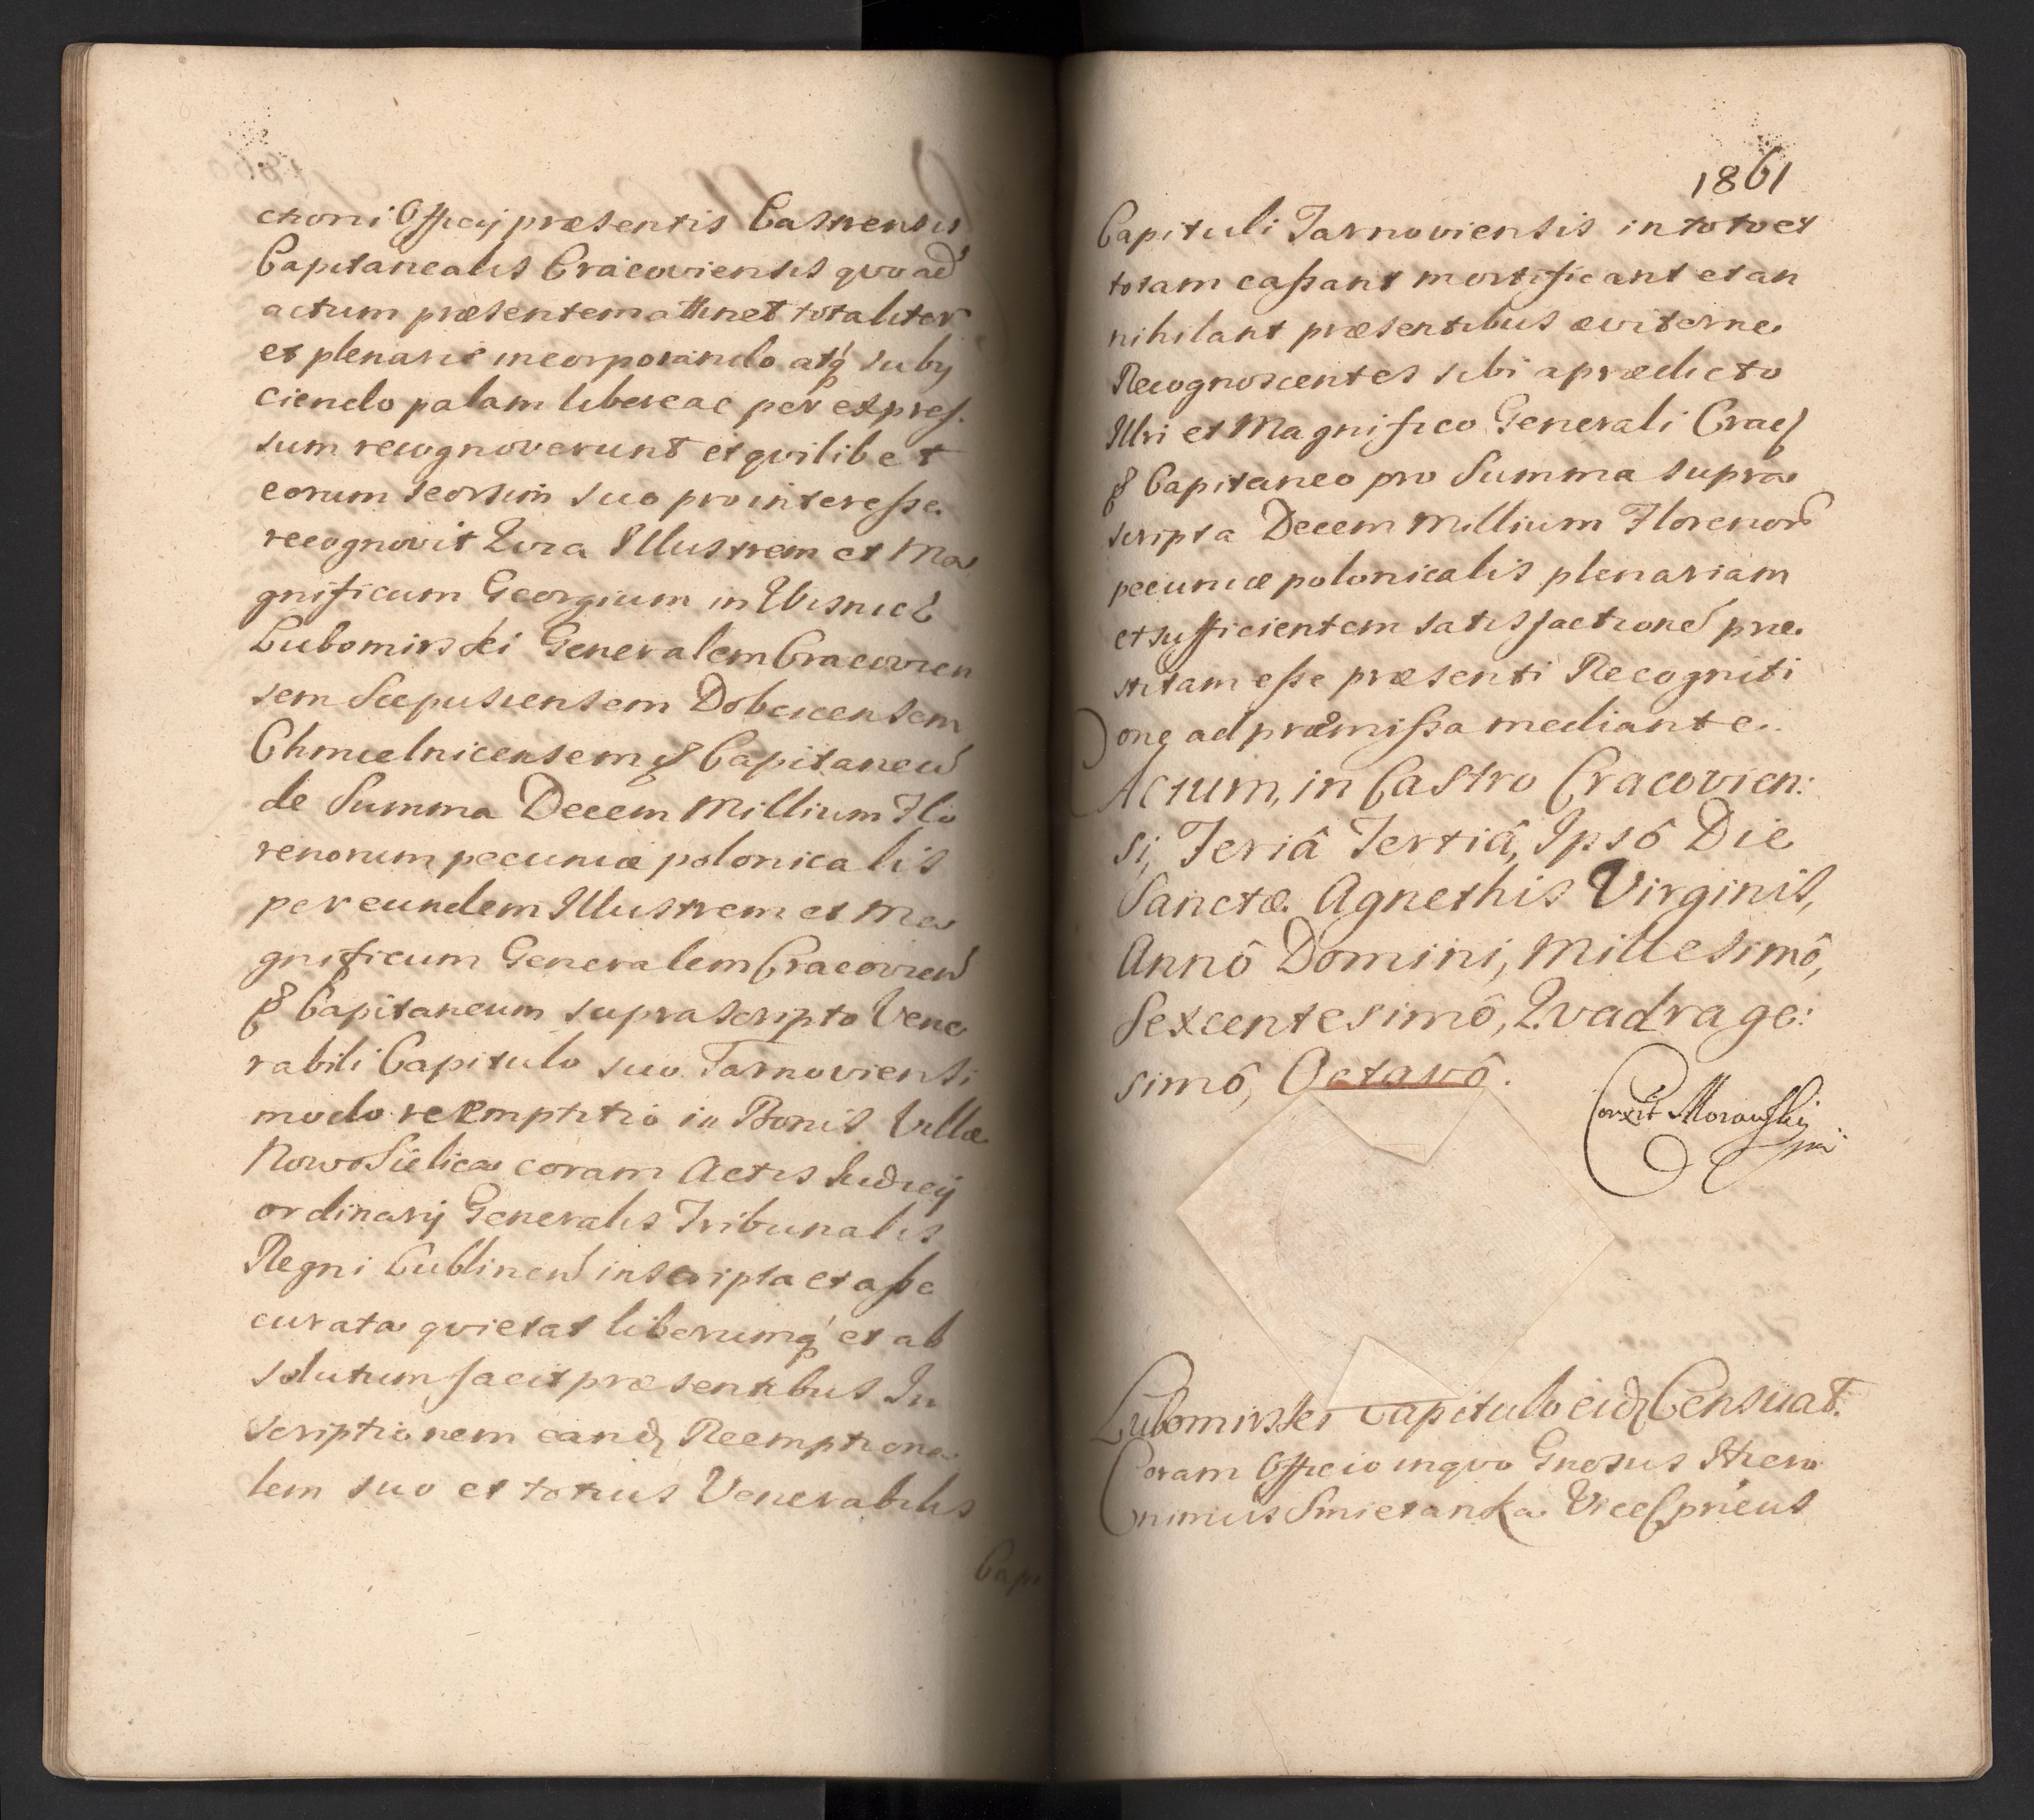 ctioni Officij præsentis Castrensis
Capitanealis Cracoviensis quoad
actum præsentem attinet totaliter
et plenarie incorporando atq́ subij
ciendo palam libere ac per expres.
sum recognoverunt et quilibet
eorum seorsim suo pro interesse
recognovit Quia Illustrem et Ma
gnificum Georgium in Wisnicz
Lubomirski Generalem Cracovien
sem Scepusiensem Dobcicensem
Chmielnicensem & Capitaneum
de Summa Decem Millium Flo
renorum pecuniæ polonicalis
per eundem Illustrem et Ma
gnificum Generalem Cracovien
& Capitaneum suprascripto Vene
rabili Capitulo suo Tarnoviensi
modo reemptitio in Bonis Villæ
NowoSielica coram Actis Iudicij
ordinarij Generalis Tribunalis
Regni Lublinen inscripta et asse
curata quietat liberumq́ et ab
solutum facit præsentibus In
scriptionem eandꝫ Reemptiona
lem suo et totius Venerabilis
Capi
1861
Capituli Tarnoviensis in toto et
totam cassant mortificant et an
nihilant præsentibus æviterne
Recognoscentes sibi a prædicto
Illri et Magnifico Generali Crac
& Capitaneo pro Summa supra
scripta Decem Millium Florenor
pecuniæ polonicalis plenariam
et sufficientem satisfactione præ
stitam esse præsenti Recogniti
one ad præmissa mediante.
Actum, in Castro Cracovien:
si, Feriâ Tertiâ, Ipsô Die
Sanctæ Agnethis Virginis,
Annô Domini, Millesimô,
Sexcentesimô, Qvadrage:
simô, Octavô.
Corxit Morawski
mp
Lubomirski Capitulo eidꝫ Censuat.
Coram Officio in quo Gnosus Hiero
nimus Smietanka Vicesprieus